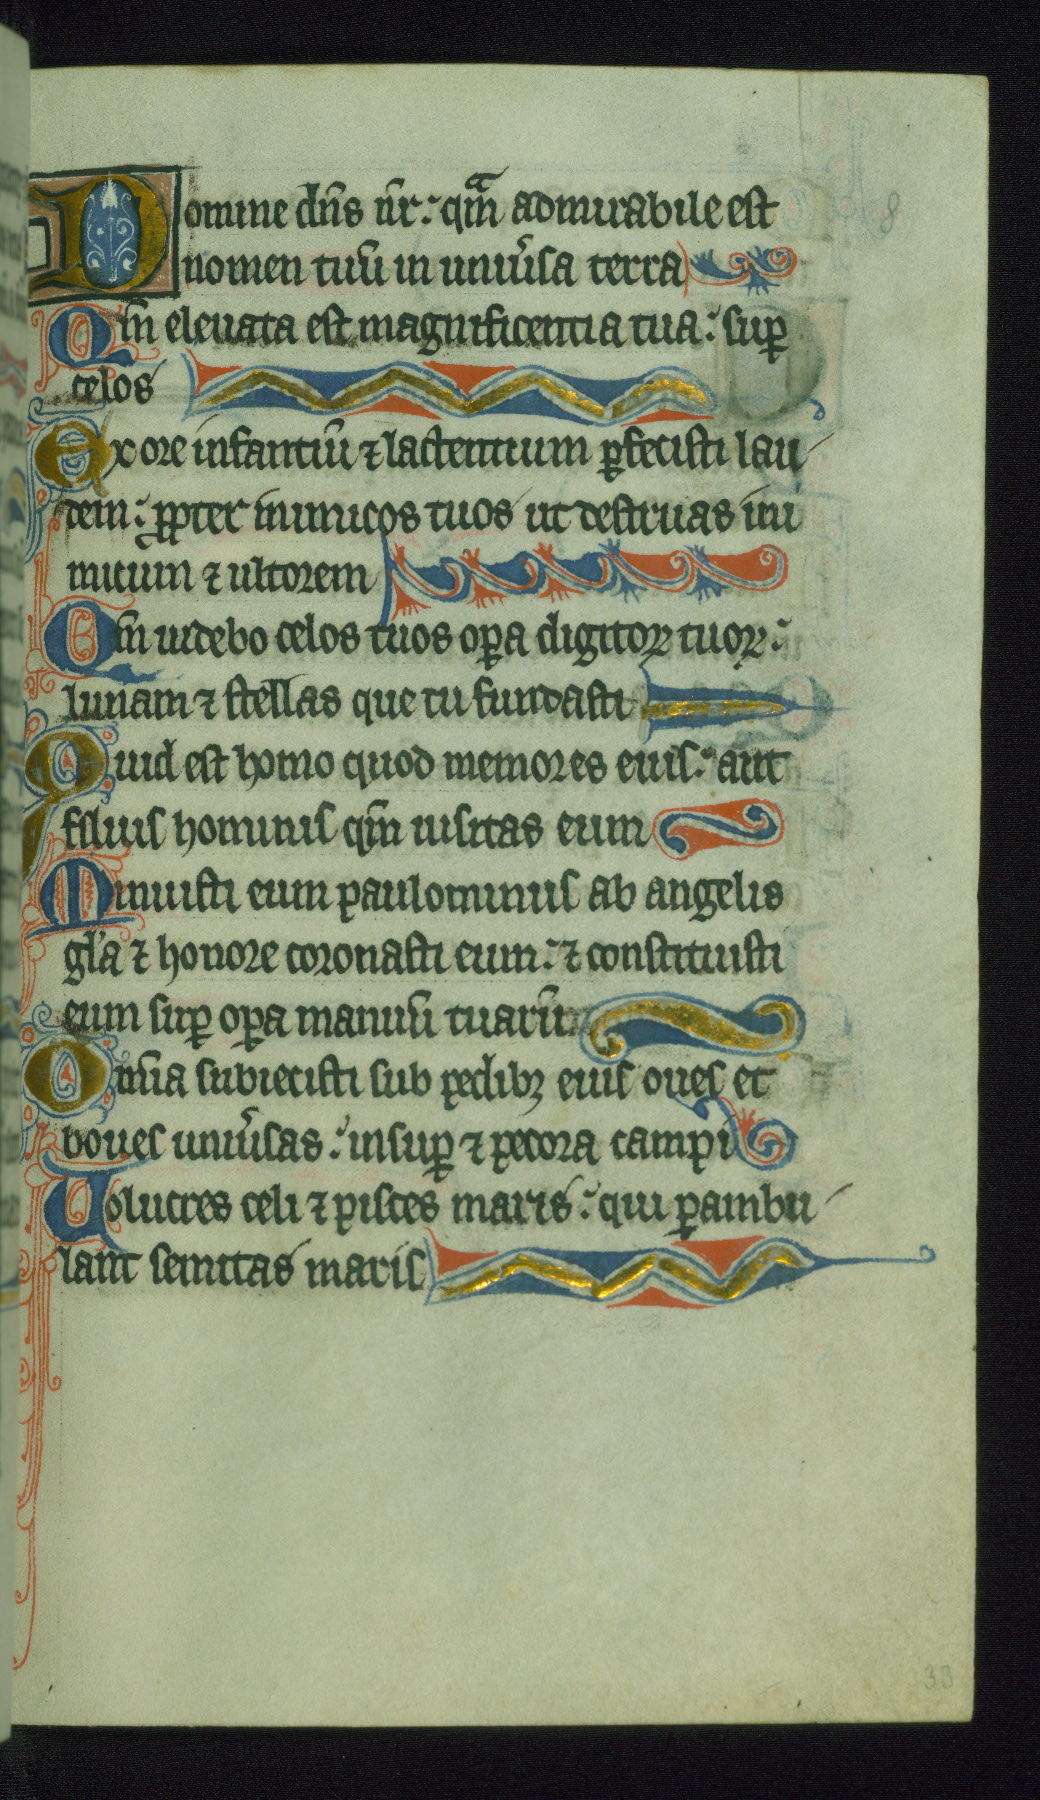 8
Domine dn̄s nr̄: qm̄ admirabile est
nomen tuū in uniu̾sa terra
Qm̄ eleuata est magnificentia tua: sup̱
celos
Ex ore infantiū ⁊ lactentium ꝑfecisti lau
dem: ꝓpter inimicos tuos ut destruas ini
micum ⁊ ultorem
Qm̄ uidebo celos tuos oꝑa digitoꝝ tuoꝝ:
lunam ⁊ stellas que tu fundasti
Quid est homo quod memores eius: aut
filius hominis qm̄ uisitas eum
Minuisti eum paulominus ab angelis
gl̄a ⁊ honore coronasti eum: ⁊ constituisti
eum suꝑ oꝑa manuū tuarū
Om̄ia subiecisti sub pedibꝫ eius oues et
boues uniu̾sas: insuꝑ ⁊ pecora campi
Uolucres celi ⁊ pisces maris: qui ꝑambu
lant semitas maris
33